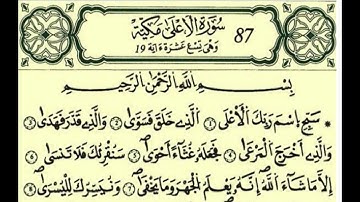 سُورَةُ الْأَعْلَىٰ مَكِّيَّةٌ 87
وَهْيَ تِسْعَ عَشْرَةَ ءَايَةً 19
بِسْمِ اللَّهِ الرَّحْمَٰنِ الرَّحِيمِ
سَبِّحِ اِسْمَ رَبِّكَ الْأَعْلَى ① الَّذِي خَلَقَ فَسَوَّىٰ ② وَالَّذِي قَدَّرَ فَهَدَىٰ ③
وَالَّذِي أَخْرَجَ الْمَرْعَىٰ ④ فَجَعَلَهُ غُثَاءً أَحْوَىٰ ⑤ سَنُقْرِئُكَ فَلَا تَنسَىٰ ⑥
إِلَّا مَا شَاءَ اللَّهُ إِنَّهُ يَعْلَمُ الْجَهْرَ وَمَا يَخْفَىٰ ⑦ وَنُيَسِّرُكَ لِلْيُسْرَىٰ ⑧